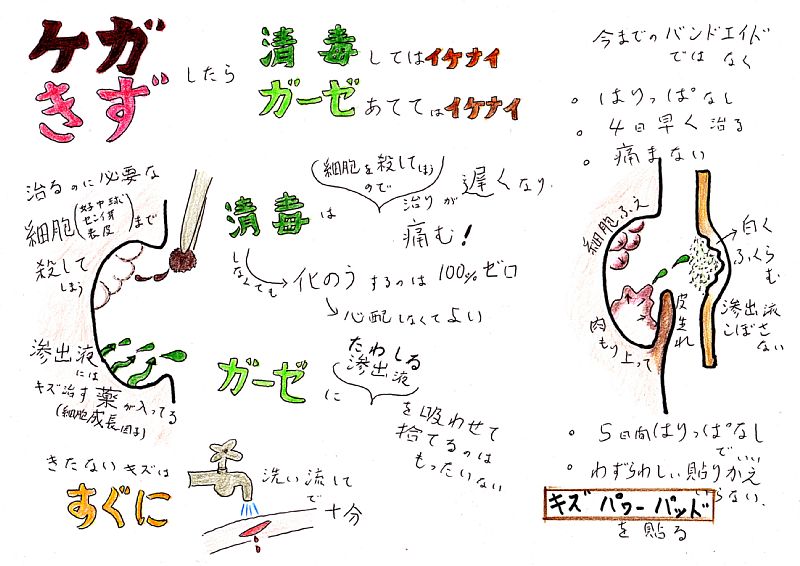 ケガ
きず
したら
消毒してはイケナイ
ガーゼあててはイケナイ
今までのバンドエイド
ではなく
。はりっぱなし
。4日早く治る
。痛まない
治るのに必要な
細胞(好中球
センイ芽
表皮)まで
殺して
しまう
消毒は
(細胞を殺してしまう
ので)
治りが遅くなり、
痛む!
しなくても
化のうするのは100%ゼロ
心配しなくてよい
滲出液
には
キズ治す薬が入ってる
(細胞成長因子)
ガーゼに
滲出液
を吸わせて
捨てるのは
もったいない
きたないキズは
すぐに
洗い流して
で十分
細胞ふえ
肉
もり上って
皮生れ
白く
ふくら
む
滲出液
こぼさ
ない
。5日間はりっぱなし
でいい
。わずらわしい貼りかえ
いらない.
キズパワーパッド
を貼る